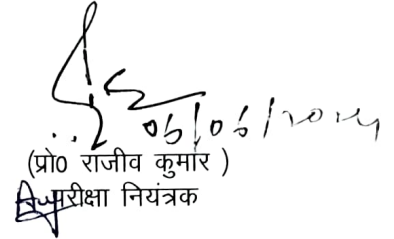 06/06/2024
(प्रो० राजीव कुमार )
परीक्षा नियंत्रक